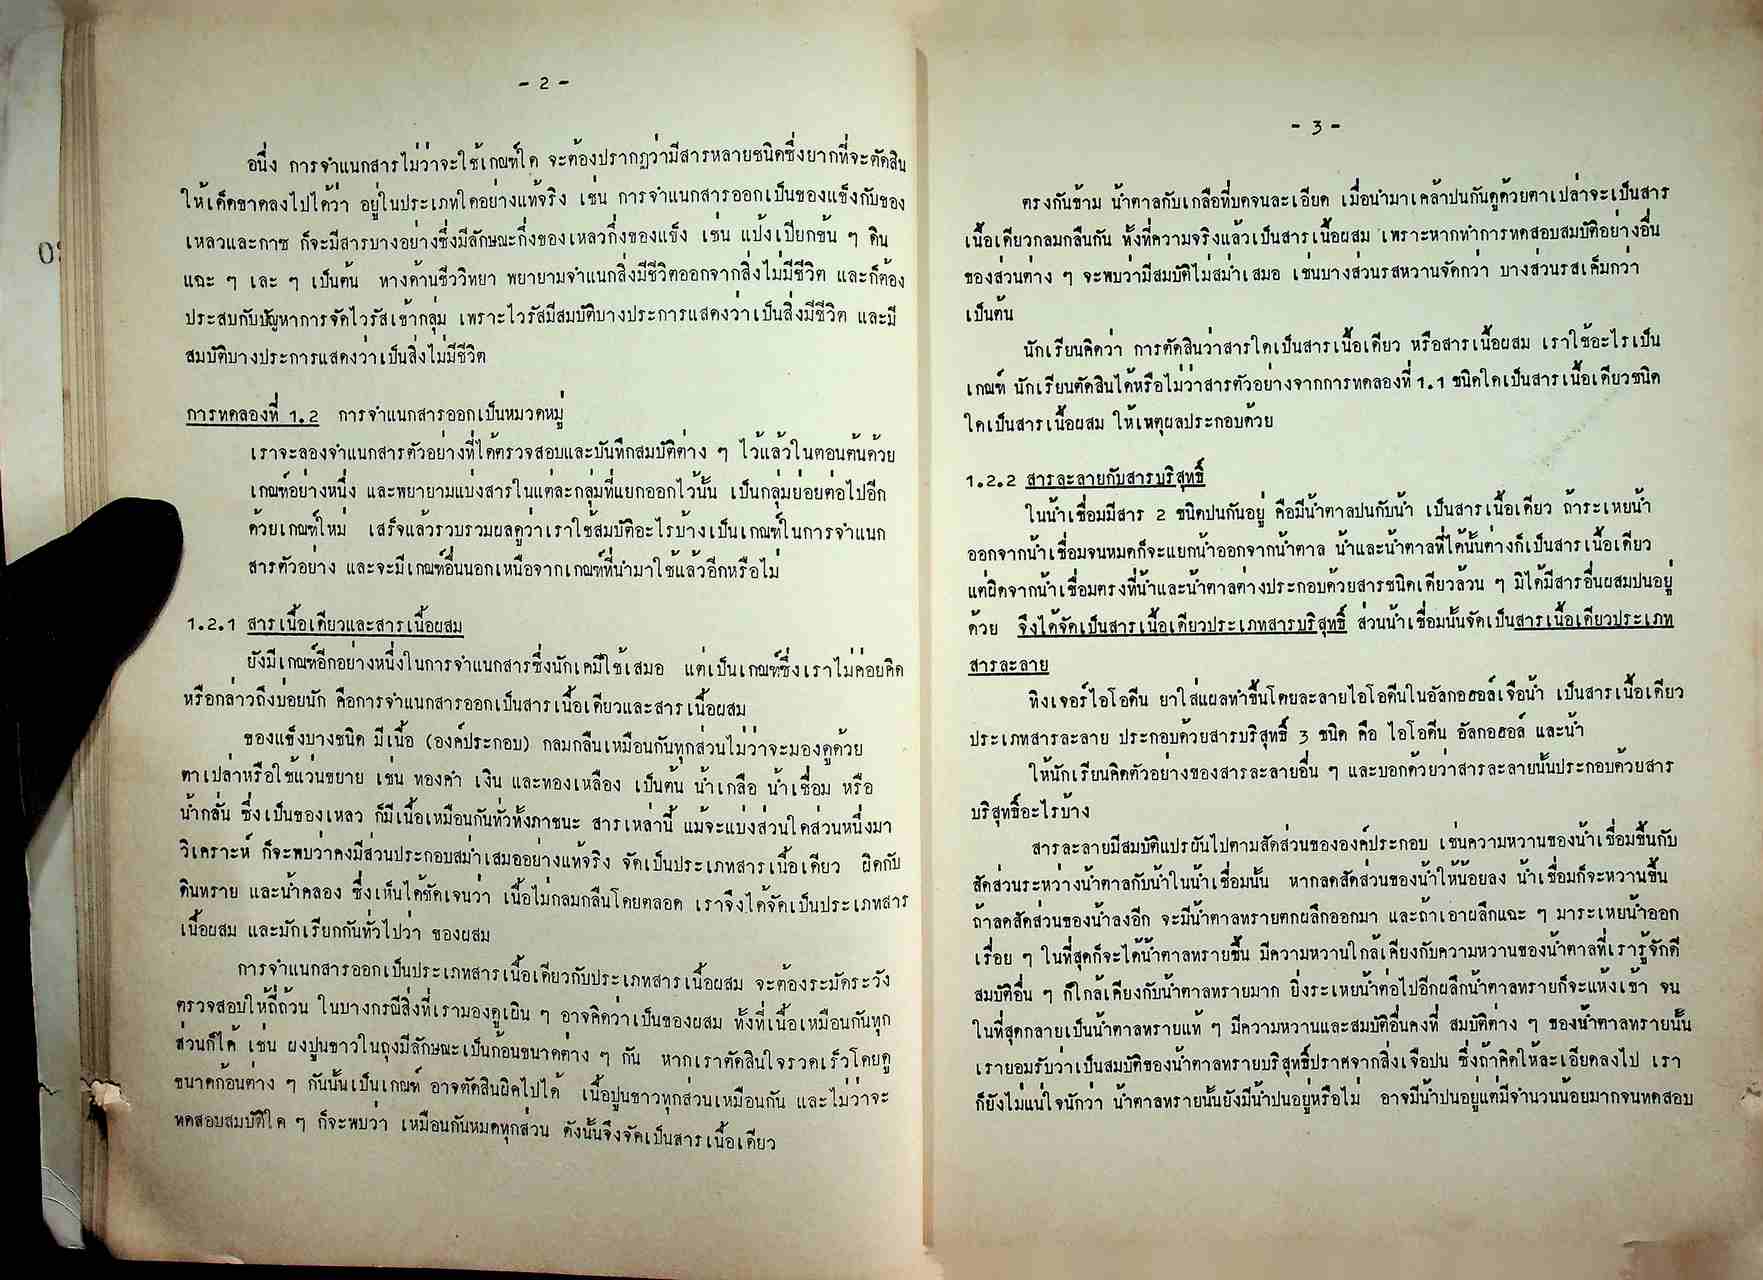 - 2 -
อนึ่ง การจำแนกสารไม่ว่าจะใช้เกณฑ์ใด จะต้องปรากฏว่ามีสารหลายชนิดซึ่งยากที่จะตัดสิน
ให้เด็ดขาดลงไปได้ว่า อยู่ในประเภทใดอย่างแท้จริง เช่น การจำแนกสารออกเป็นของแข็งกับของ
เหลวและกาซ ก็จะมีสารบางอย่างซึ่งมีลักษณะกึ่งของเหลวกึ่งของแข็ง เช่น แป้งเปียกข้น ๆ ดิน
แฉะ ๆ เละ ๆ เป็นต้น ทางด้านชีววิทยา พยายามจำแนกสิ่งมีชีวิตออกจากสิ่งไม่มีชีวิต และก็ต้อง
ประสบกับปัญหาการจัดไวรัสเข้ากลุ่ม เพราะไวรัสมีสมบัติบางประการแสดงว่าเป็นสิ่งมีชีวิต และมี
สมบัติบางประการแสดงว่าเป็นสิ่งไม่มีชีวิต
การทดลองที่ 1.2 การจำแนกสารออกเป็นหมวดหมู่
เราจะลองจำแนกสารตัวอย่างที่ได้ตรวจสอบและบันทึกสมบัติต่าง ๆ ไว้แล้วในตอนต้นด้วย
เกณฑ์อย่างหนึ่ง และพยายามแบ่งสารในแต่ละกลุ่มที่แยกออกไว้นั้น เป็นกลุ่มย่อยต่อไปอีก
ด้วยเกณฑ์ใหม่ เสร็จแล้วรวบรวมผลดูว่าเราใช้สมบัติอะไรบ้างเป็นเกณฑ์ในการจำแนก
สารตัวอย่าง และจะมีเกณฑ์อื่นนอกเหนือจากเกณฑ์ที่นำมาใช้แล้วอีกหรือไม่
1.2.1 สารเนื้อเดียวและสารเนื้อผสม
ยังมีเกณฑ์อีกอย่างหนึ่งในการจำแนกสารซึ่งนักเคมีใช้เสมอ แต่เป็นเกณฑ์ซึ่งเราไม่ค่อยคิด
หรือกล่าวถึงบ่อยนัก คือการจำแนกสารออกเป็นสารเนื้อเดียวและสารเนื้อผสม
ของแข็งบางชนิด มีเนื้อ (องค์ประกอบ) กลมกลืนเหมือนกันทุกส่วนไม่ว่าจะมองดูด้วย
ตาเปล่าหรือใช้แว่นขยาย เช่น ทองคำ เงิน และทองเหลือง เป็นต้น น้ำเกลือ น้ำเชื่อม หรือ
น้ำกลั่น ซึ่งเป็นของเหลว ก็มีเนื้อเหมือนกันทั่วทั้งภาชนะ สารเหล่านี้ แม้จะแบ่งส่วนใดส่วนหนึ่งมา
วิเคราะห์ ก็จะพบว่าคงมีส่วนประกอบสม่ำเสมออย่างแท้จริง จัดเป็นประเภทสารเนื้อเดียว ผิดกับ
ดินทราย และน้ำคลอง ซึ่งเห็นได้ชัดเจนว่า เนื้อไม่กลมกลืนโดยตลอด เราจึงได้จัดเป็นประเภทสาร
เนื้อผสม และมักเรียกกันทั่วไปว่า ของผสม
การจำแนกสารออกเป็นประเภทสารเนื้อเดียวกับประเภทสารเนื้อผสม จะต้องระมัดระวัง
ตรวจสอบให้ถี่ถ้วน ในบางกรณีสิ่งที่เรามองดูเผิน ๆ อาจคิดว่าเป็นของผสม ทั้งที่เนื้อเหมือนกันทุก
ส่วนก็ได้ เช่น ผงปูนขาวในถุงมีลักษณะเป็นก้อนขนาดต่าง ๆ กัน หากเราตัดสินใจรวดเร็วโดยดู
ขนาดก้อนต่าง ๆ กันนั้นเป็นเกณฑ์ อาจตัดสินผิดไปได้ เนื้อปูนขาวทุกส่วนเหมือนกัน และไม่ว่าจะ
ทดสอบสมบัติใด ๆ ก็จะพบว่า เหมือนกันหมดทุกส่วน ดังนั้นจึงจัดเป็นสารเนื้อเดียว
- 3 -
ตรงกันข้าม น้ำตาลกับเกลือที่บดจนละเอียด เมื่อนำมาเคล้าปนกันดูด้วยตาเปล่าจะเป็นสาร
เนื้อเดียวกลมกลืนกัน ทั้งที่ความจริงแล้วเป็นสารเนื้อผสม เพราะหากทำการทดสอบสมบัติอย่างอื่น
ของส่วนต่าง ๆ จะพบว่ามีสมบัติไม่สม่ำเสมอ เช่นบางส่วนรสหวานจัดกว่า บางส่วนรสเค็มกว่า
เป็นต้น
นักเรียนคิดว่า การตัดสินว่าสารใดเป็นสารเนื้อเดียว หรือสารเนื้อผสม เราใช้อะไรเป็น
เกณฑ์ นักเรียนตัดสินได้หรือไม่ว่าสารตัวอย่างจากการทดลองที่ 1.1 ชนิดใดเป็นสารเนื้อเดียวชนิด
ใดเป็นสารเนื้อผสม ให้เหตุผลประกอบด้วย
1.2.2 สารละลายกับสารบริสุทธิ์
ในน้ำเชื่อมมีสาร 2 ชนิดปนกันอยู่ คือมีน้ำตาลปนกับน้ำ เป็นสารเนื้อเดียว ถ้าระเหยน้ำ
ออกจากน้ำเชื่อมจนหมดก็จะแยกน้ำออกจากน้ำตาล น้ำและน้ำตาลที่ได้นั้นต่างก็เป็นสารเนื้อเดียว
แต่ผิดจากน้ำเชื่อมตรงที่น้ำและน้ำตาลต่างประกอบด้วยสารชนิดเดียวล้วน ๆ มิได้มีสารอื่นผสมปนอยู่
ด้วย จึงได้จัดเป็นสารเนื้อเดียวประเภทสารบริสุทธิ์ ส่วนน้ำเชื่อมนั้นจัดเป็นสารเนื้อเดียวประเภท
สารละลาย
ทิงเจอร์ไอโอดีน ยาใส่แผลทำขึ้นโดยละลายไอโอดีนในอัลกอฮอล์เจือน้ำ เป็นสารเนื้อเดียว
ประเภทสารละลาย ประกอบด้วยสารบริสุทธิ์ 3 ชนิด คือ ไอโอดีน อัลกอฮอล์ และน้ำ
ให้นักเรียนคิดตัวอย่างของสารละลายอื่น ๆ และบอกด้วยว่าสารละลายนั้นประกอบด้วยสาร
บริสุทธิ์อะไรบ้าง
สารละลายมีสมบัติแปรผันไปตามสัดส่วนขององค์ประกอบ เช่นความหวานของน้ำเชื่อมขึ้นกับ
สัดส่วนระหว่างน้ำตาลกับน้ำในน้ำเชื่อมนั้น หากลดสัดส่วนของน้ำให้น้อยลง น้ำเชื่อมก็จะหวานขึ้น
ถ้าลดสัดส่วนของน้ำลงอีก จะมีน้ำตาลทรายตกผลึกออกมา และถ้าเอาผลึกแฉะ ๆ มาระเหยน้ำออก
เรื่อย ๆ ในที่สุดก็จะได้น้ำตาลทรายขึ้น มีความหวานใกล้เคียงกับความหวานของน้ำตาลที่เรารู้จักดี
สมบัติอื่น ๆ ก็ใกล้เคียงกับน้ำตาลทรายมาก ยิ่งระเหยน้ำต่อไปอีกผลึกน้ำตาลทรายก็จะแห้งเข้า จน
ในที่สุดกลายเป็นน้ำตาลทรายแท้ ๆ มีความหวานและสมบัติอื่นคงที่ สมบัติต่าง ๆ ของน้ำตาลทรายนั้น
เรายอมรับว่าเป็นสมบัติของน้ำตาลทรายบริสุทธิ์ปราศจากสิ่งเจือปน ซึ่งถ้าคิดให้ละเอียดลงไป เรา
ก็ยังไม่แน่ใจนักว่า น้ำตาลทรายนั้นยังมีน้ำปนอยู่หรือไม่ อาจมีน้ำปนอยู่แต่มีจำนวนน้อยมากจนทดสอบ